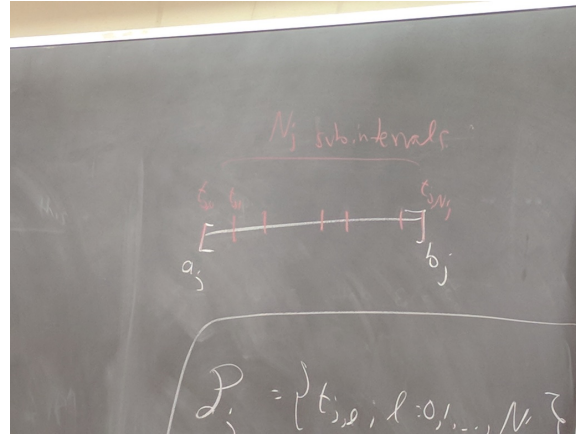 N_j subintervals
t_{j,0} t_{j,1} t_{j,N_j}
a_j b_j
P_j = { t_{j,l}, l=0,1,...,N_j }